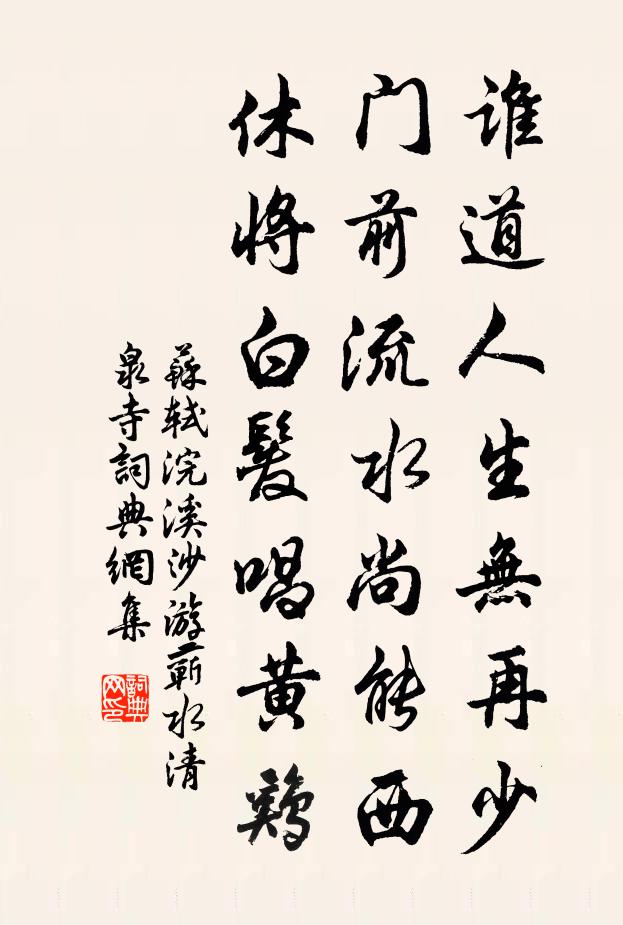 谁道人生無再少
门前流水尚能西
休将白髮唱黄鷄
蘇轼浣溪沙游蕲水清
泉寺詞典網集
詞典
网印